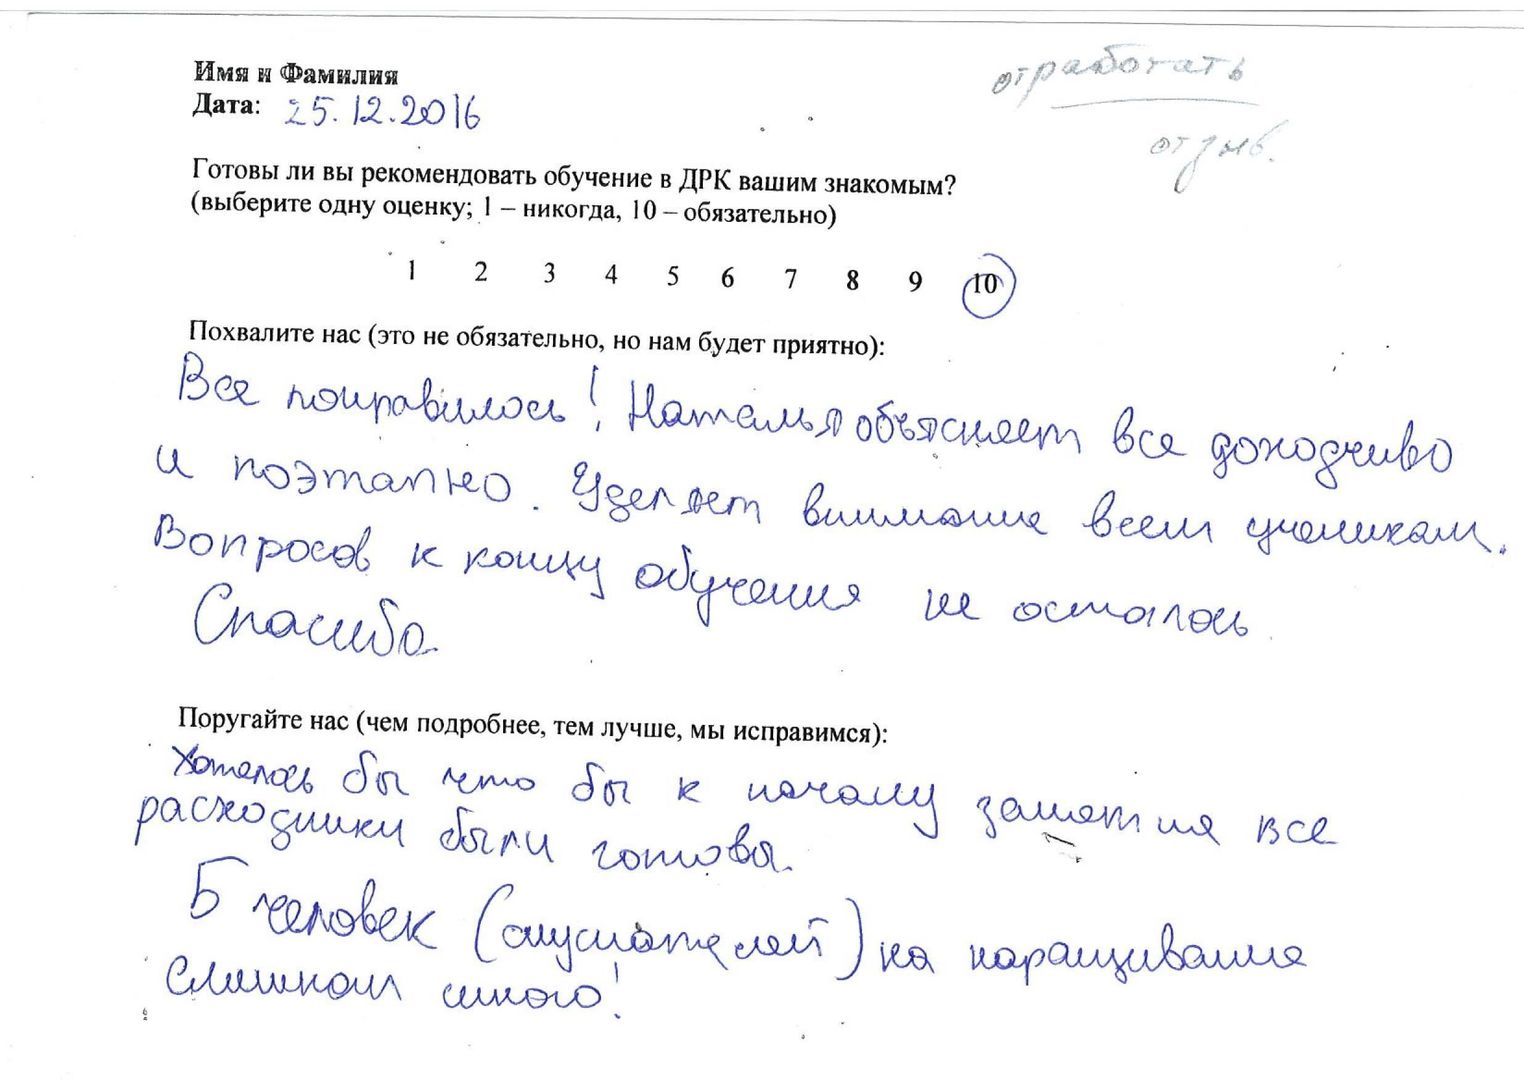 Имя и Фамилия
отработать
Дата: 25.12.2016
отзыв.
Готовы ли вы рекомендовать обучение в ДРК вашим знакомым?
(выберите одну оценку; 1 – никогда, 10 – обязательно)
1 2 3 4 5 6 7 8 9 10
Похвалите нас (это не обязательно, но нам будет приятно):
Все понравилось! Наталья объясняет все доходчиво
и поэтапно. Уделяет внимание всем ученикам.
Вопросов к концу обучения не осталось
Спасибо.
Поругайте нас (чем подробнее, тем лучше, мы исправимся):
Хотелось бы что бы к началу занятия все
расходники были готовы.
5 человек (слушателей) на наращивание
слишком много!